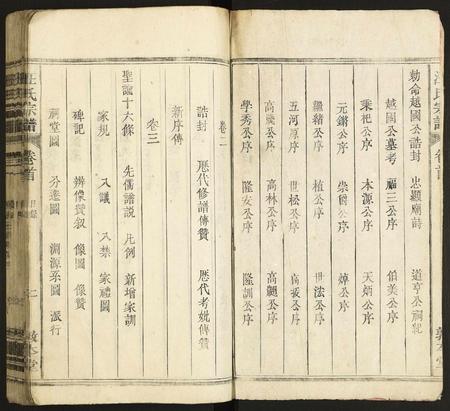 汪氏宗譜 卷首
敦本堂
勅命越國公誥封 忠顯廟詩 道亨公祠記
越國公墓考 福三公序 伯美公序
秉祀公序 本源公序 天炳公序
元鏘公序 崇爵公序 焯公序
繼緒公序 植公序 世法公序
五河原序 世松公序 高嵗公序
高慶公序 高林公序 高颺公序
學秀公序 隆安公序 隆訓公序
卷二
誥封 歷代修譜傳贊 歷代考妣傳贊
新序傳
卷三
聖諭十六條 先儒譜說 凡例 新增家訓
家規 入議 入禁 家禮圖
碑記 辨像贊叙 像圖 像贊
祠堂圖 分遷圖 淵源系圖 派行
汪氏宗譜 卷首 目錄 七 敦本堂